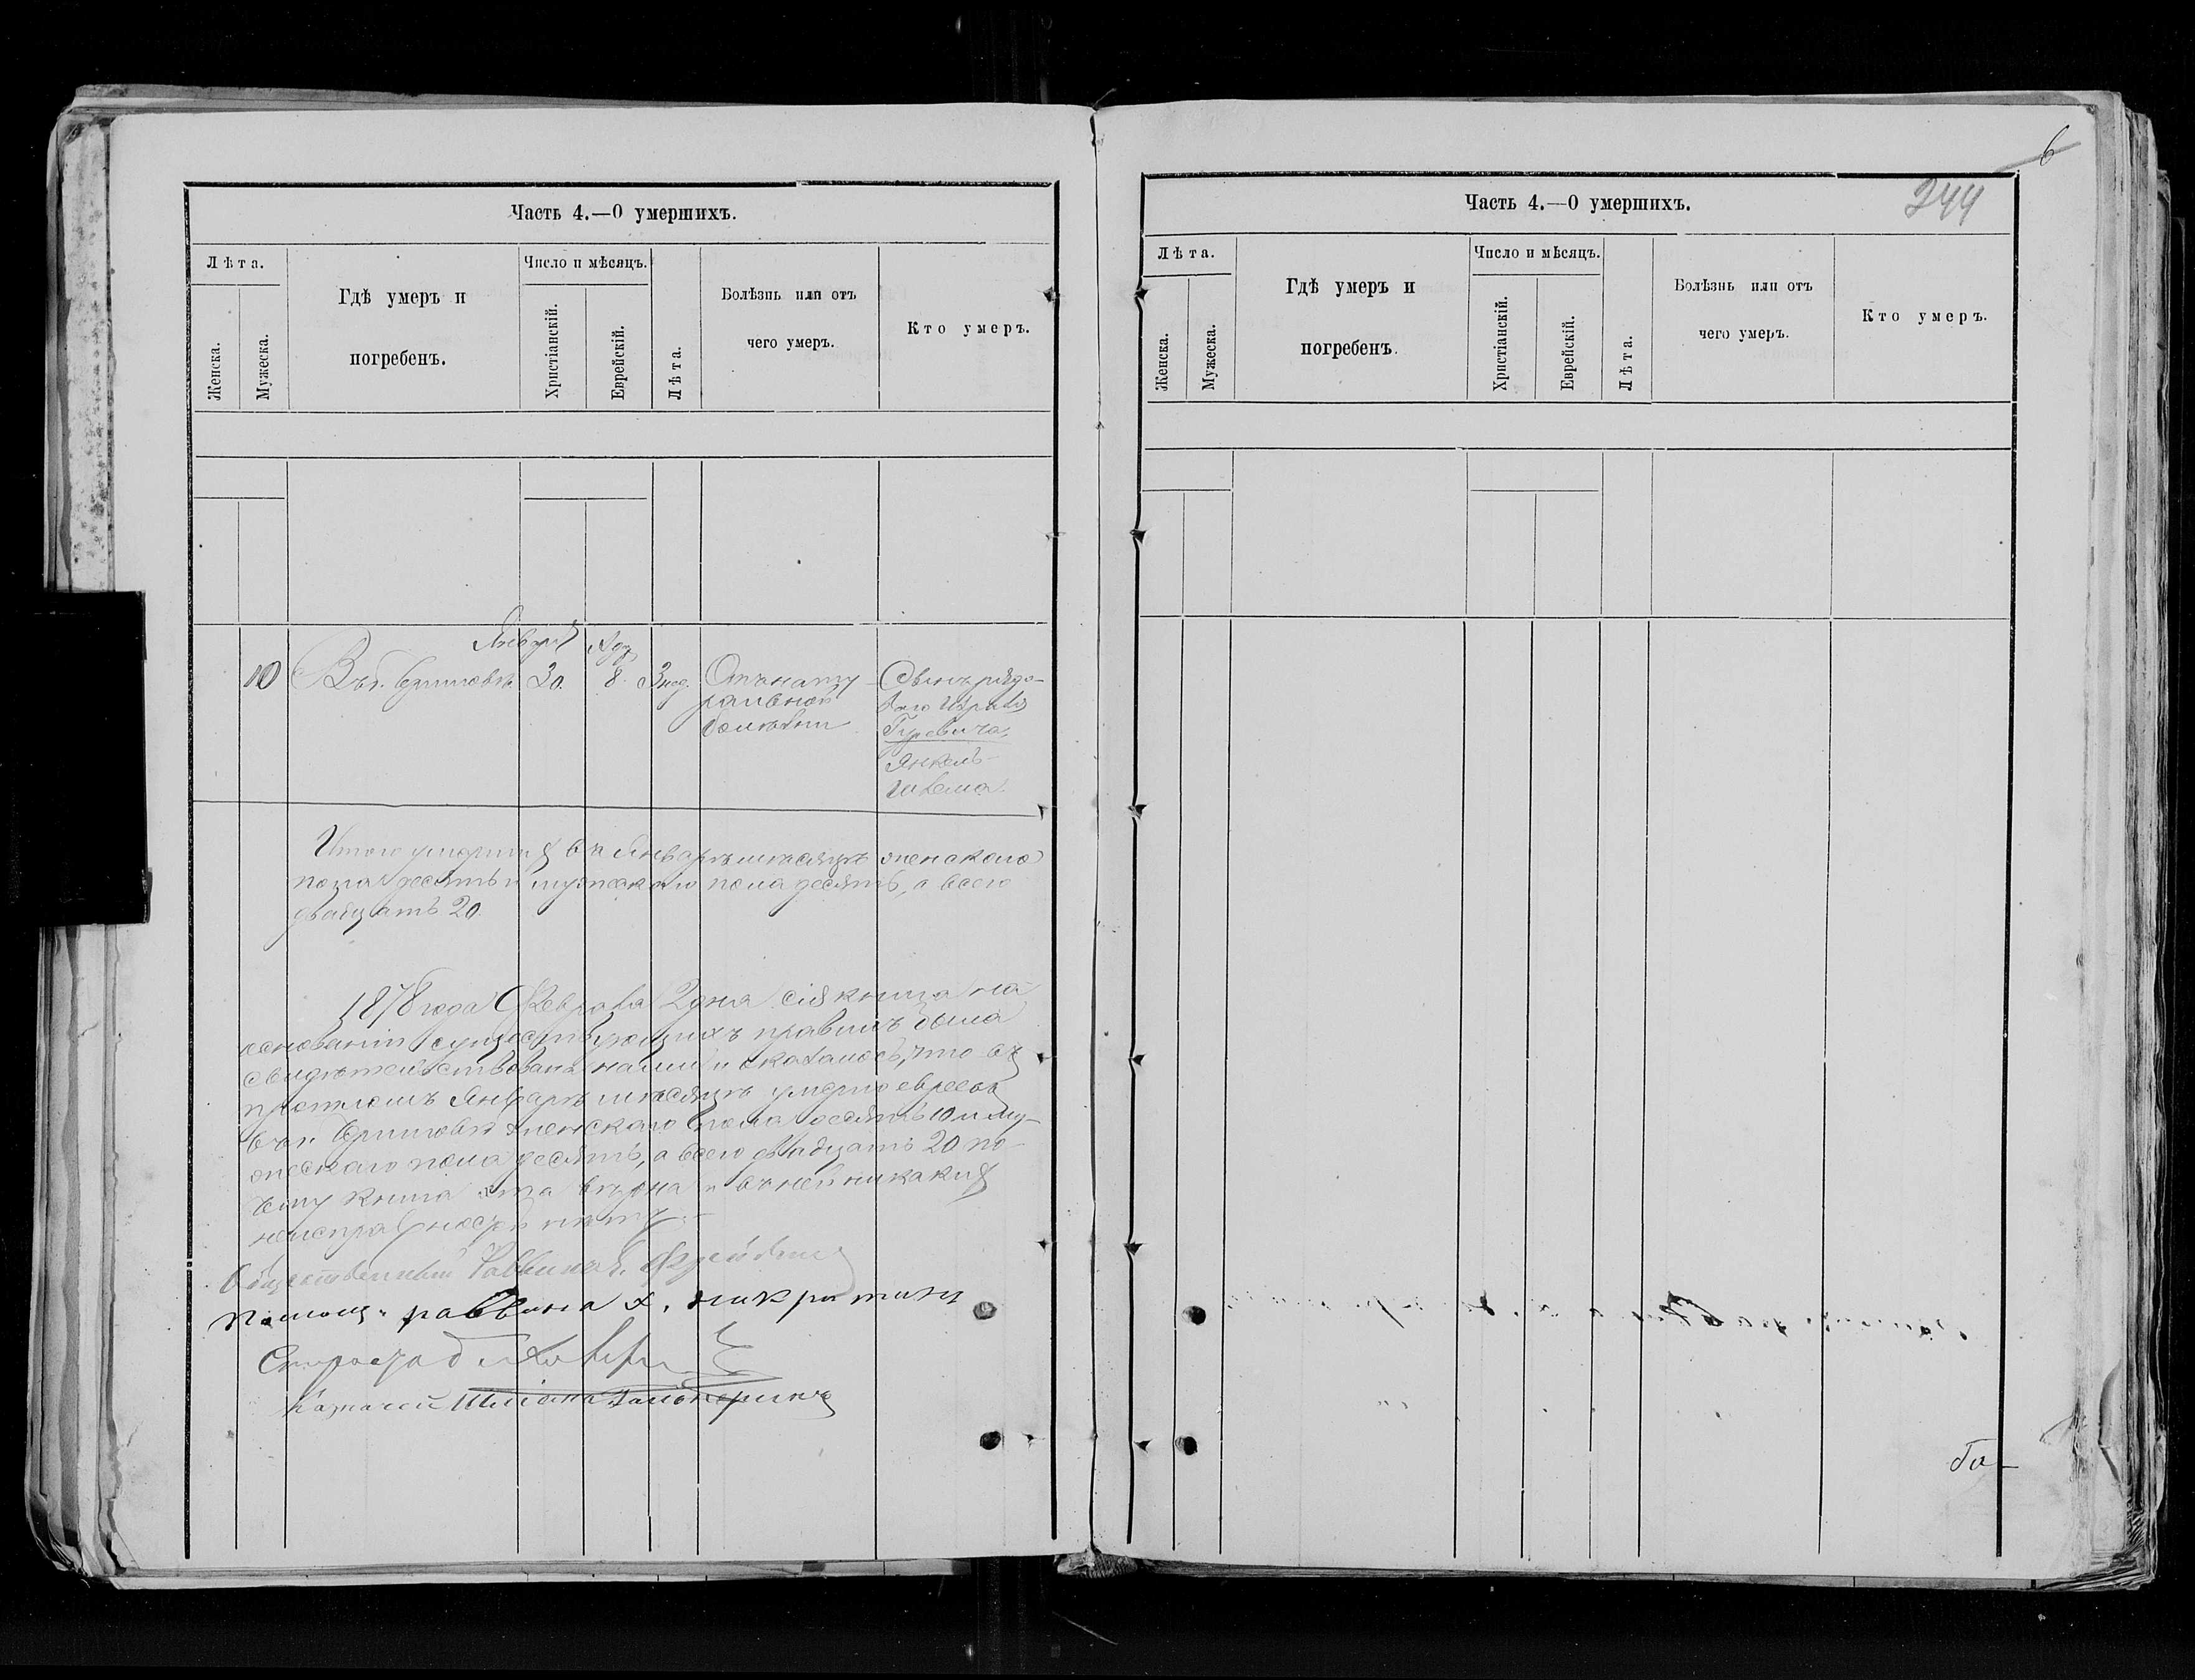 Часть 4.—О умершихъ.
Лѣта.
Женска.
Мужеска.
Гдѣ умеръ и
погребенъ.
Число и мѣсяцъ.
Христіанскій.
Еврейскій.
Лѣта.
Болѣзнь или отъ
чего умеръ.
Кто умеръ.
Января
10
Въ г.
30.
8.
3 нед.
Отъ нату
ральной
болѣзни
Сынъ
Гуревича,
Янкель
Итого умершихъ въ Январѣ мѣсяцѣ женскаго
пола десять и мужескаго пола десять, а всего
двадцать 20.
1878 года Февраля 2 дня сія книга на
основаніи существующихъ правилъ была
свидѣтельствована нами и оказалось, что въ
прошломъ Январѣ мѣсяцѣ умерло евреевъ
въ г. женскаго пола десять 10 и му-
жескаго пола десять, а всего двадцать 20 по-
чему книга эта вѣрна и въ ней никакихъ
неисправностей нѣтъ.
Общественный Раввинъ
Помощ. раввина Х.
Староста
Казначей
6
244
Часть 4.—О умершихъ.
Лѣта.
Женска.
Мужеска.
Гдѣ умеръ и
погребенъ.
Число и мѣсяцъ.
Христіанскій.
Еврейскій.
Лѣта.
Болѣзнь или отъ
чего умеръ.
Кто умеръ.